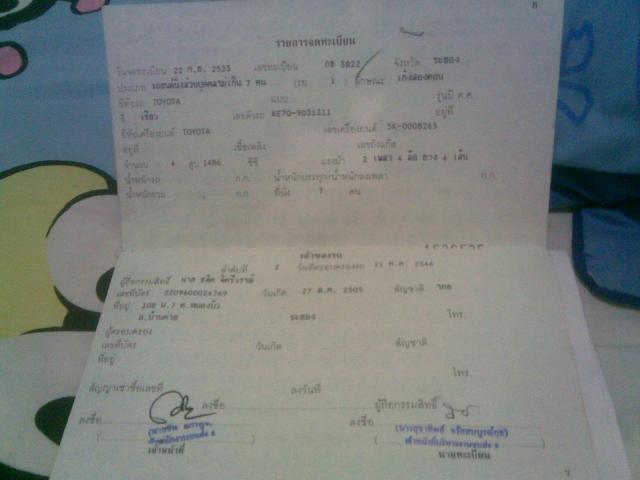 8
รายการจดทะเบียน
วันจดทะเบียน 22 ก.ย. 2523 เลขทะเบียน กธ 3822 จังหวัด ระยอง
ประเภท รถยนต์นั่งส่วนบุคคลไม่เกิน 7 คน (รย. 1 ) ลักษณะ เก๋งสองตอน
ยี่ห้อรถ TOYOTA แบบ รุ่นปี ค.ศ.
สี เขียว เลขตัวรถ KE70-9031311 อยู่ที่
ยี่ห้อเครื่องยนต์ TOYOTA เลขเครื่องยนต์ 5K-0008265
อยู่ที่ เชื้อเพลิง เลขถังแก๊ส
จำนวน 4 สูบ 1486 ซีซี แรงม้า 2 เพลา 4 ล้อ ยาง 4 เส้น
น้ำหนักรถ ก.ก. น้ำหนักบรรทุก/น้ำหนักลงเพลา ก.ก.
น้ำหนักรวม ก.ก. ที่นั่ง 7 คน
เจ้าของรถ
ลำดับที่ 2 วันที่ครอบครองรถ 21 ค.ศ. 2546
ผู้ถือกรรมสิทธิ์ นาย
เลขที่บัตร 3209600024769 วันเกิด 27 ส.ค. 2505 สัญชาติ ไทย
ที่อยู่ 108 ม.7 ต.หนองบัว
อ.บ้านค่าย ระยอง โทร.
ผู้ครอบครอง
เลขที่บัตร วันเกิด สัญชาติ
ที่อยู่
โทร.
สัญญาเช่าซื้อเลขที่ ลงวันที่
ผู้ถือกรรมสิทธิ์
ลงชื่อ ลงชื่อ ลงชื่อ
เจ้าหน้าที่ นายทะเบียน
7